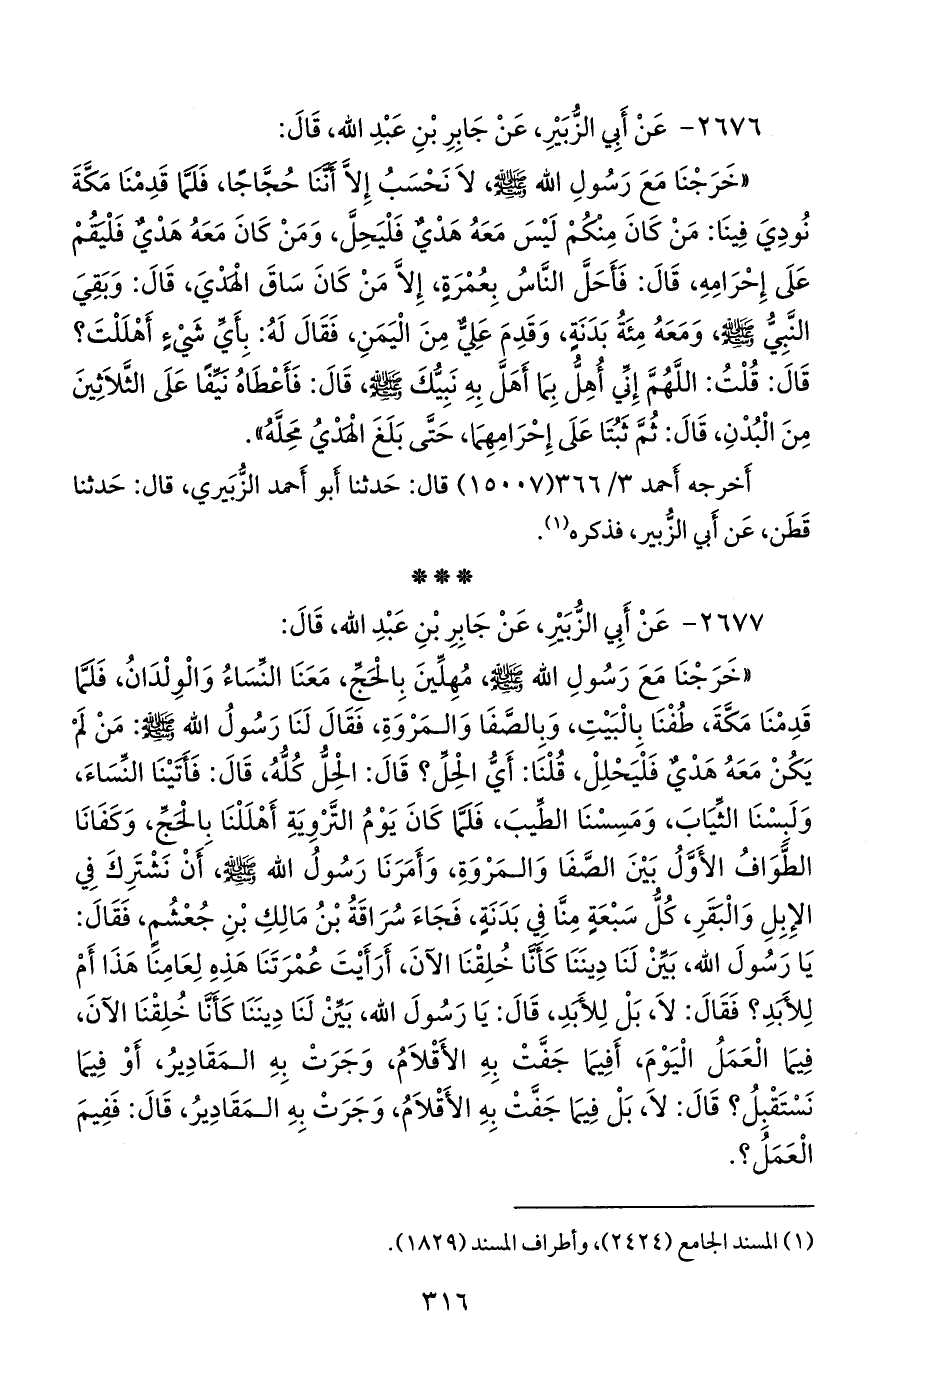 ٢٦٧٦- عَنْ أَبِي الزُّبَيْرِ، عَنْ جَابِرِ بْنِ عَبْدِ الله، قَالَ:
«خَرَجْنَا مَعَ رَسُولِ الله ﷺ، لاَ نَحْسَبُ إِلاَّ أَنَّنَا حُجَّاجًا، فَلَمَّا قَدِمْنَا مَكَّةَ
نُودِيَ فِينَا: مَنْ كَانَ مِنْكُمْ لَيْسَ مَعَهُ هَدْيٌ فَلْيَحِلَّ، وَمَنْ كَانَ مَعَهُ هَدْيٌ فَلْيَقُمْ
عَلَى إِحْرَامِهِ، قَالَ: فَأَحَلَّ النَّاسُ بِعُمْرَةٍ، إِلاَّ مَنْ كَانَ سَاقَ الهَدْيَ، قَالَ: وَبَقِيَ
النَّبِيُّ ﷺ، وَمَعَهُ مِئَةُ بَدَنَةٍ، وَقَدِمَ عَلِيٌّ مِنَ الْيَمَنِ، فَقَالَ لَهُ: بِأَيِّ شَيْءٍ أَهْلَلْتَ؟
قَالَ: قُلْتُ: اللَّهُمَّ إِنِّي أُهِلُّ بِمَا أَهَلَّ بِهِ نَبِيُّكَ ﷺ، قَالَ: فَأَعْطَاهُ نَيِّفًا عَلَى الثَّلاَثِينَ
مِنَ الْبُدْنِ، قَالَ: ثُمَّ ثَبُتَا عَلَى إِحْرَامِهِمَا، حَتَّى بَلَغَ الهَدْيُ مَحِلَّهُ».
أخرجه أحمد ٣/ ٣٦٦(١٥٠٠٧) قال: حَدثنا أَبو أحمد الزُّبَيري، قال: حَدثنا
قَطَن، عَن أَبي الزُّبير، فذكره(١).
***
٢٦٧٧- عَنْ أَبِي الزُّبَيْرِ، عَنْ جَابِرِ بْنِ عَبْدِ الله، قَالَ:
«خَرَجْنَا مَعَ رَسُولِ الله ﷺ، مُهِلِّينَ بِالْحَجِّ، مَعَنَا النِّسَاءُ وَالْوِلْدَانُ، فَلَمَّا
قَدِمْنَا مَكَّةَ، طُفْنَا بِالْبَيْتِ، وَبِالصَّفَا وَالـمَرْوَةِ، فَقَالَ لَنَا رَسُولُ الله ﷺ: مَنْ لَمْ
يَكُنْ مَعَهُ هَدْيٌ فَلْيَحْلِلْ، قُلْنَا: أَيُّ الْحِلِّ؟ قَالَ: الْحِلُّ كُلُّهُ، قَالَ: فَأَتَيْنَا النِّسَاءَ،
وَلَبِسْنَا الثِّيَابَ، وَمَسِسْنَا الطِّيبَ، فَلَمَّا كَانَ يَوْمُ التَّرْوِيَةِ أَهْلَلْنَا بِالْحَجِّ، وَكَفَانَا
الطَّوَافُ الأَوَّلُ بَيْنَ الصَّفَا وَالـمَرْوَةِ، وَأَمَرَنَا رَسُولُ الله ﷺ، أَنْ نَشْتَرِكَ فِي
الإِبِلِ وَالْبَقَرِ، كُلُّ سَبْعَةٍ مِنَّا فِي بَدَنَةٍ، فَجَاءَ سُرَاقَةُ بْنُ مَالِكِ بْنِ جُعْشُمٍ، فَقَالَ:
يَا رَسُولَ الله، بَيِّنْ لَنَا دِينَنَا كَأَنَّا خُلِقْنَا الآنَ، أَرَأَيْتَ عُمْرَتَنَا هَذِهِ لِعَامِنَا هَذَا أَمْ
لِلأَبَدِ؟ فَقَالَ: لاَ، بَلْ لِلأَبَدِ، قَالَ: يَا رَسُولَ الله، بَيِّنْ لَنَا دِينَنَا كَأَنَّا خُلِقْنَا الآنَ،
فِيمَا الْعَمَلُ الْيَوْمَ، أَفِيمَا جَفَّتْ بِهِ الأَقْلاَمُ، وَجَرَتْ بِهِ الـمَقَادِيرُ، أَوْ فِيمَا
نَسْتَقْبِلُ؟ قَالَ: لاَ، بَلْ فِيمَا جَفَّتْ بِهِ الأَقْلاَمُ، وَجَرَتْ بِهِ الـمَقَادِيرُ، قَالَ: فَفِيمَ
الْعَمَلُ؟.
(١) المسند الجامع (٢٤٢٤)، وأطراف المسند (١٨٢٩).
٣١٦